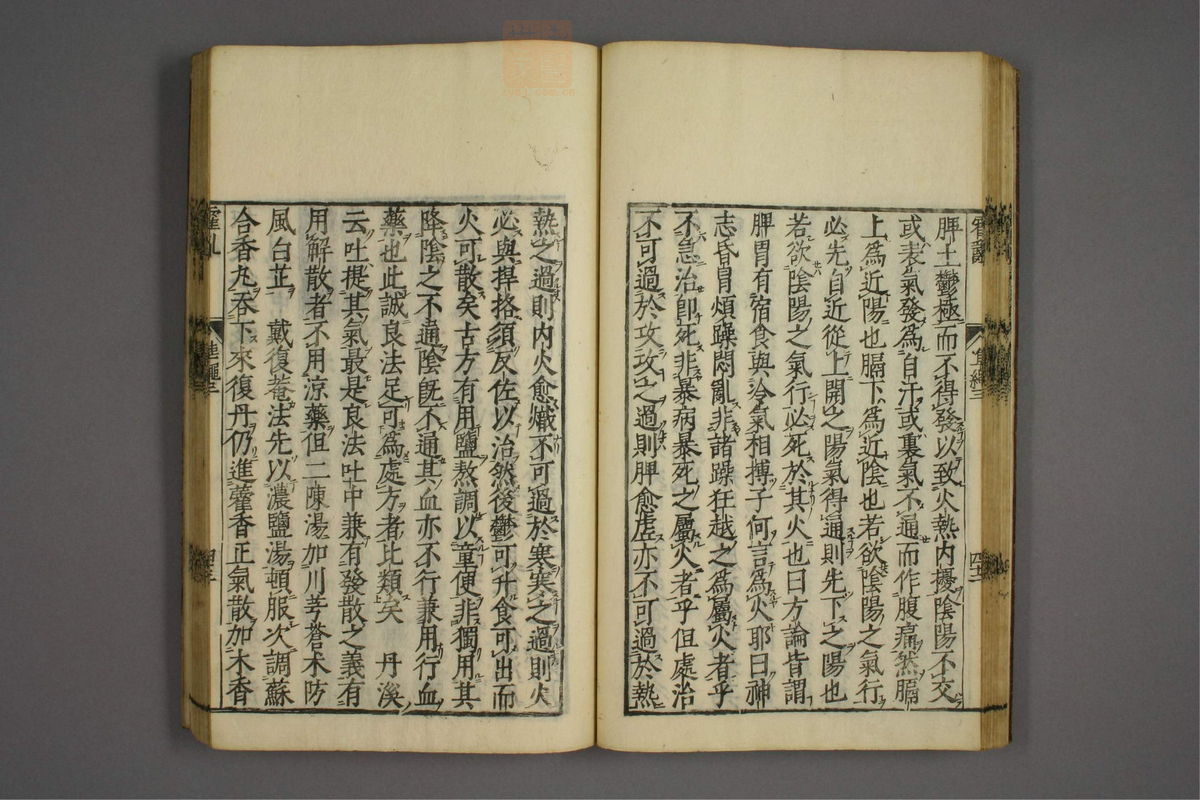 脾土鬱極而不得發以致火熱內擾陰陽不交
或表氣發爲自汗或裏氣不通而作腹痛然膈
上爲近陽也膈下爲近陰也若欲陰陽之氣行
必先自近從上開之陽氣得通則先下之陽也
若欲陰陽之氣行必死於其火也曰方論皆謂
脾胃有宿食與冷氣相搏子何言爲火耶曰神
志昏冐煩躁悶亂非諸躁狂越之爲屬火者乎
不急治卽死非暴病暴死之屬火者乎但處治
不可過於攻攻之過則脾愈虛亦不可過於熱
熱之過則內火愈熾不可過於寒寒之過則火
必與捍格須反佐以治然後鬱可升食可出而
火可散矣古方有用鹽熬調以童便非獨用其
降陰之不通陰旣不通其血亦不行兼用行血
藥也此誠良法足可爲處方者比類矣 丹溪
云吐提其氣最是良法吐中兼有發散之義有
用解散者不用涼藥但二陳湯加川芎蒼朮防
風白芷 戴復菴法先以濃鹽湯頓服次調蘇
合香丸吞下來復丹仍進藿香正氣散加木香
霍亂
準繩三
四十三